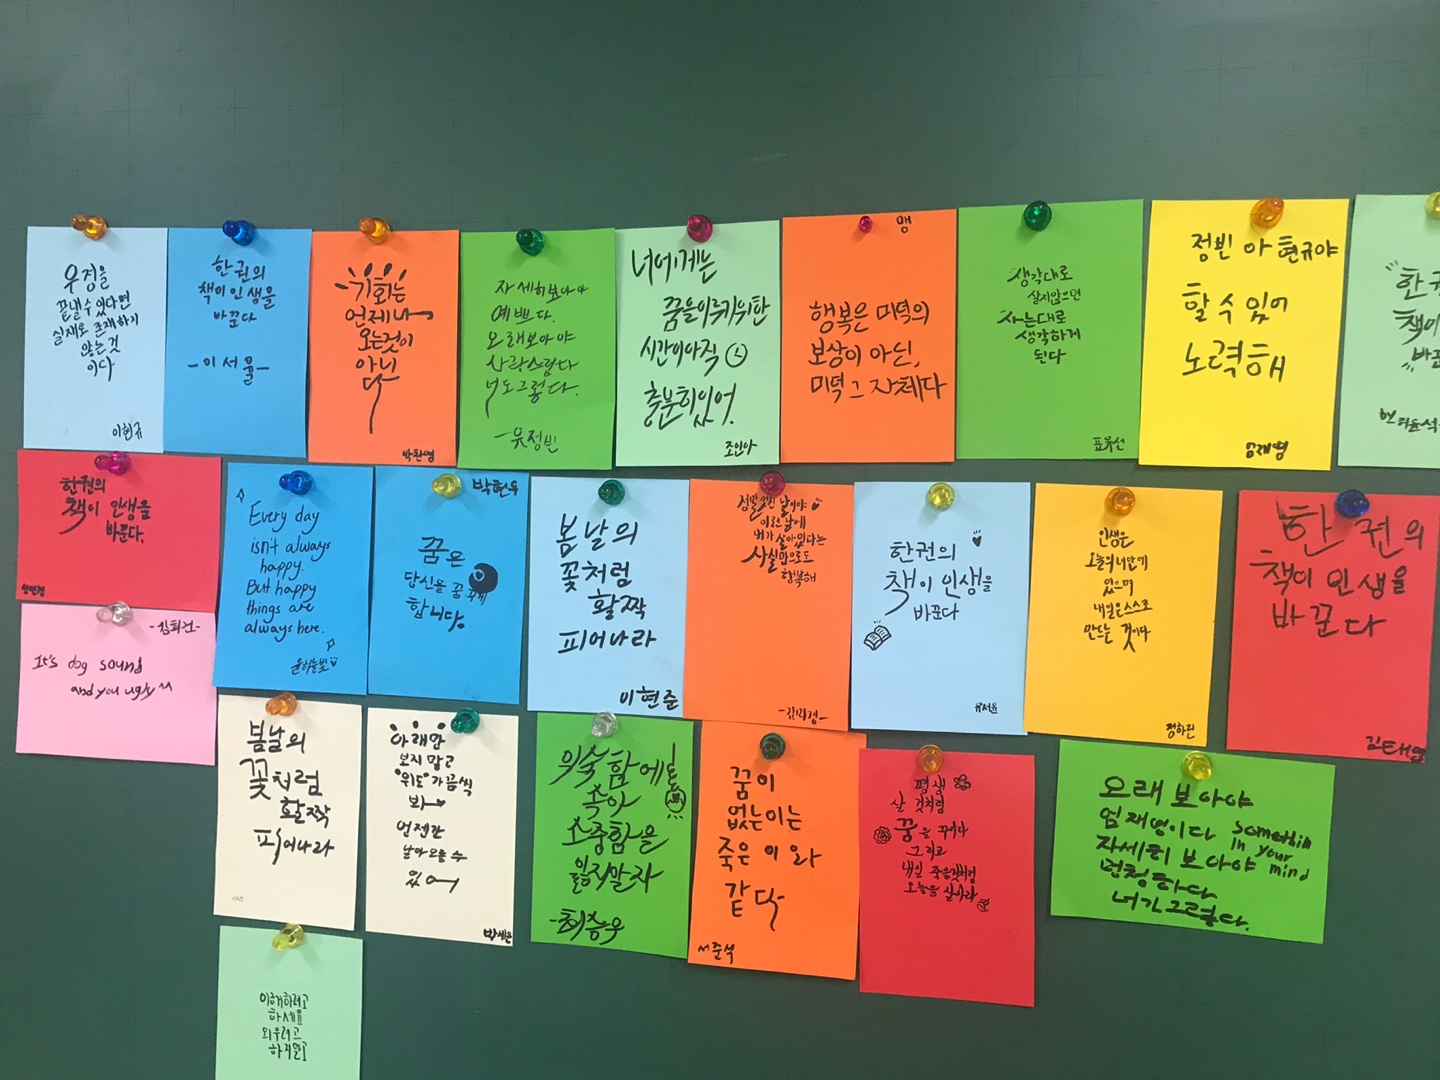 우정을
끝낼 수 있다면
실제로 존재하지
않는 것
이다
이현규
한 권의
책이 인생을
바꾼다
-이서율-
기회는
언제나
오는것이
아니
다
박찬영
자세히보아야
예쁘다.
오래보아야
사랑스럽다
너도그렇다.
-유정빈
너에게는
꿈을이루기위한
시간이아직
충분히있어.
조인아
맹
행복은 미덕의
보상이 아닌,
미덕 그 자체다
생각대로
살지않으면
사는대로
생각하게
된다
표유선
정빈아 현규야
할 수 있어
노력해
엄재명
"한권
책이
바꾼
한권의
책이 인생을
바꾼다.
Every day
isn't always
happy.
But happy
things are
always here.
윤하늘빛
박현우
꿈은
당신을 꿈꾸게
합니다.
봄날의
꽃처럼
활짝
피어나라
이현준
정말 멋진 날이야
이런 날에
내가 살아있다는
사실만으로도
행복해
한권의
책이 인생을
바꾼다
유서윤
인생은
오늘의 나 안에
있으며
내일은 스스로
만드는 것이다
정하린
한 권의
책이 인생을
바꾼다
김태영
-김회건-
It's dog sound
and you ugly ^^
봄날의
꽃처럼
활짝
피어나라
아래만
보지 말고
"위도" 가끔씩
봐
언젠간
날아오를 수
있어
박세윤
익숙함에
속아
소중함을
잃지말자
-최승우
꿈이
없는이는
죽은 이와
같다
서준석
평생
살 것처럼
꿈을 꾸어라
그리고
내일 죽을것처럼
오늘을 살아라
오래 보아야
엄재명이다
자세히 보아야
멍청하다
너가그렇다.
somethin
in your
mind
이해하려고
하세요
외우려고
하지말고